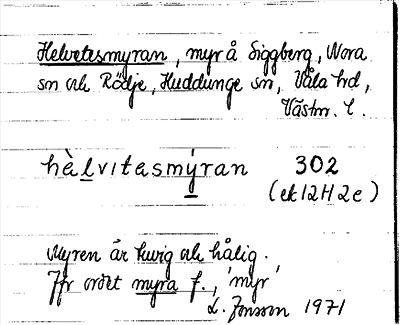 Helvetesmyran, myr å Siggberg, Nora
sn och Rödje, Huddunge sn, Våla hd,
Västm. l.
hὰlvitasmýran 302
(ek 12H 2e)
Myren är kuvig och hålig.
Jfr ordet myra f., 'myr'
L. Jonsson 1971